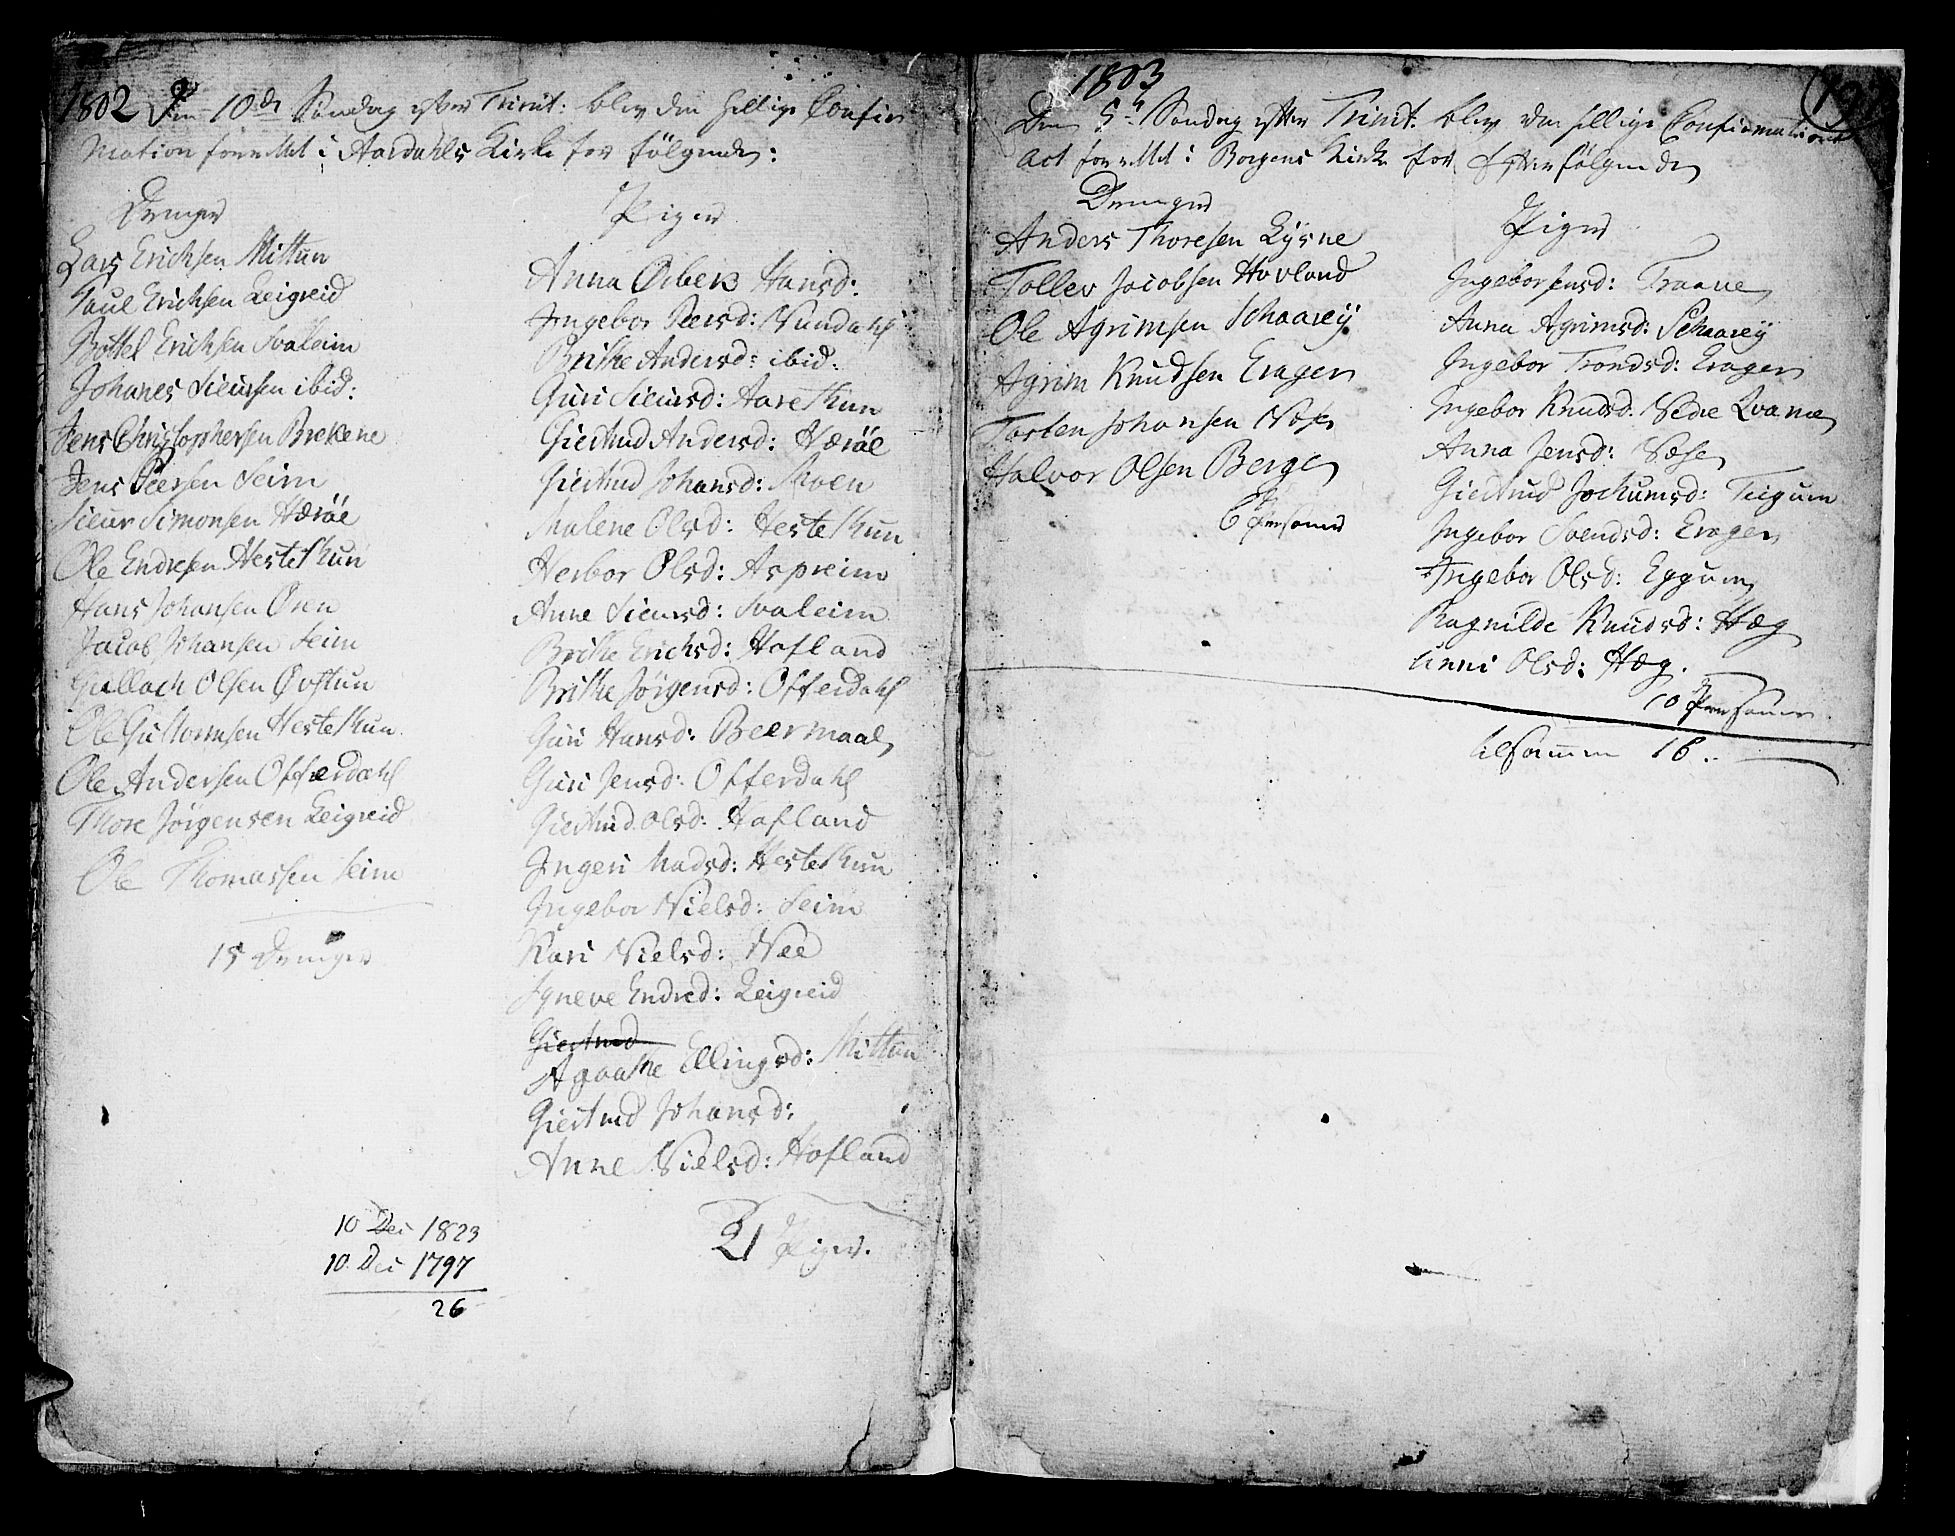 1802 Den 10de Søndag efter Trinit: blev den hellige Confir
mation forrettet i Aardahls Kirke for følgende:
Drenger
Lars Erichsen Mittun
Paul Erichsen Leigreid
Bottel Erichsen Svaleim
Johanes Sieursen ibid:
Jens Christophersen Brekene
Jens Peersen Seim
Sieur Simonsen Hæröe
Ole Endresen Hestethun
Hans Johansen Øren
Jacob Johansen Seim
Gullach Olsen Øvstun
Ole Guttormsen Hestethun
Ole Andersen Offerdahl
Thore Jörgensen Leigreid
Ole Thomassen Seim
15 Drenger
10 Dec 1823
10. Dec 1797
26
Piger
Anna Hansd:
Ingebor Peersd: Nundahl
Brithe Andersd: ibid:
Guri Sieursd: Aarethun
Giertrud Andersd: Hæröe
Giertrud Johansd: Moen
Malene Olsd: Hestethun
Herbor Olsd: Aspreim
Anne Sieursd: Svaleim
Brithe Erichsd: Hofland
Brithe Jörgensd: Offerdahl
Guri Hansd: Beermaal
Guri Jensd: Offerdahl
Giertrud Olsd: Hofland
Ingeri Madsd: Hestethun
Ingebor Nielsd: Seim
Kari Nielsd: Nee
Sÿneve Endred: Leigreid
Giertrud
Agaathe Ellingsd: Mittun
Giertrud Johansd:
Anne Nielsd: Hofland
21 Piger.
1803
Den 5te Søndag efter Trinit. blev den hellige Confirmations
act forrettet i Borgens Kirke for efterfølgende
Drenger
Anders Thoresen Lÿsne
Tollev Jacobsen Hovland
Ole Agrimsen Schaareÿ
Agrim Knudsen Erager
Torsten Johansen
Halvor Olsen Berge
6 Personer
Piger
Ingebor Jensd: Traane
Anna Agrimsd: Schaareÿ
Ingebor Trondsd: Erager
Ingebor Knudsd. Nedre Qvame
Anna Jensd: Næse
Giertrud Jochumsd: Tiigum
Ingebor Svendsd: Erager
Ingebor Olsd: Eggum
Ragnilde Knudsd: Hæg
Unni Olsd: Hæg.
10 Personer
tilsammen 16.